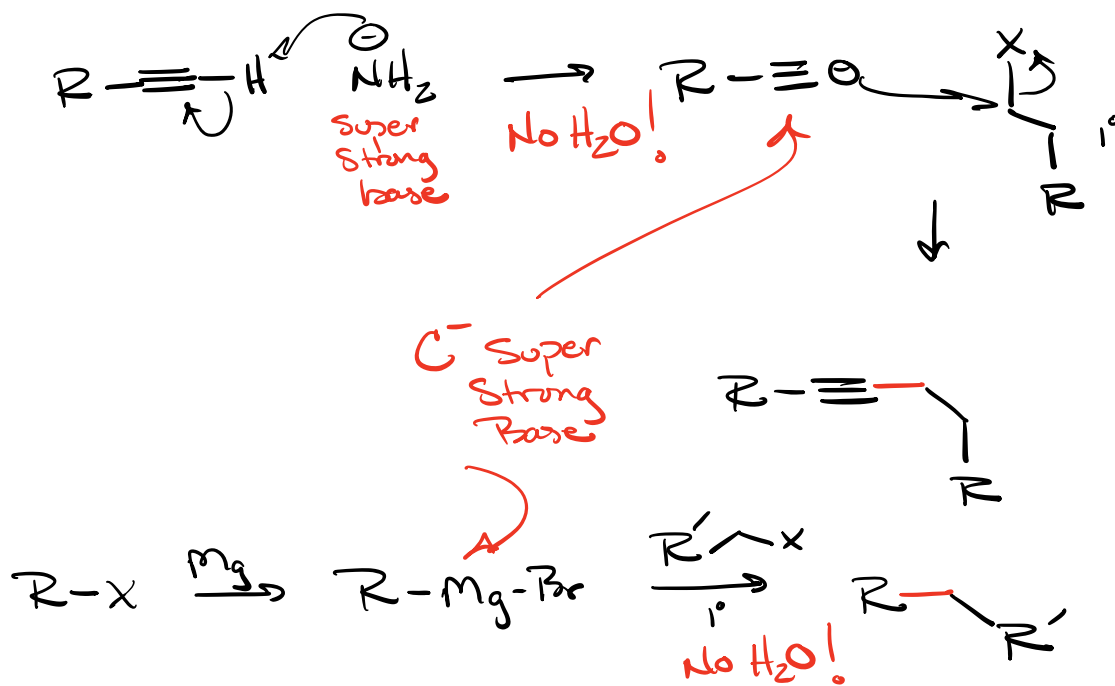 R-≡-H ⊖NH₂ → R-≡⊖ X 1° R
Super
Strong
base
No H₂O!
C⁻ Super
Strong
Base
R-≡ R
R-X Mg → R-Mg-Br R′ X 1° → R R′
No H₂O!